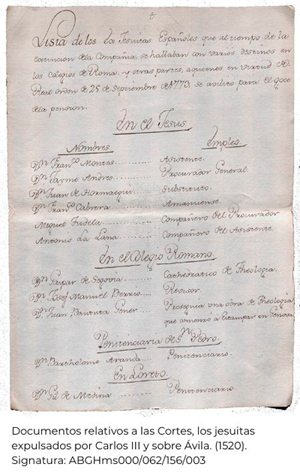 Lista de los Jesuitas Españoles que al tiempo de la
extincion de la Compañia se hallaban con varios destinos en
los Colegios de Roma, y otras partes, a quienes en virtud de
Real orden de 25 de septiembre de 1773 se para el goce
de la pension.
En el Jesus
Nombres. Empleo
Dn. Franco. Montes Asistente
Dn. Jayme Andres Procurador General
Dn. Juan de Hormaegui Substituto
Dn. Franco. Cabrera Amanuense
Miguel Compañero del Procurador
Antonio La Lana Compañero del Asistente
En el Colegio Romano
Dn. Gaspar de Segovia Cathedratico de Theologia
Dn. Josef Manuel Revisor
Dn. Juan Bautista Gener Proseguia una obra de Theologia
que comenzo a Estampar en
Penitenciaria de Sn. Pedro
Dn. Bartholome Aranda Penitenciario.
En Loreto
Dn. de Medina Penitenciario.
Documentos relativos a las Cortes, los jesuitas
expulsados por Carlos III y sobre Ávila. (1520).
Signatura: ABGHms000/062/156/003